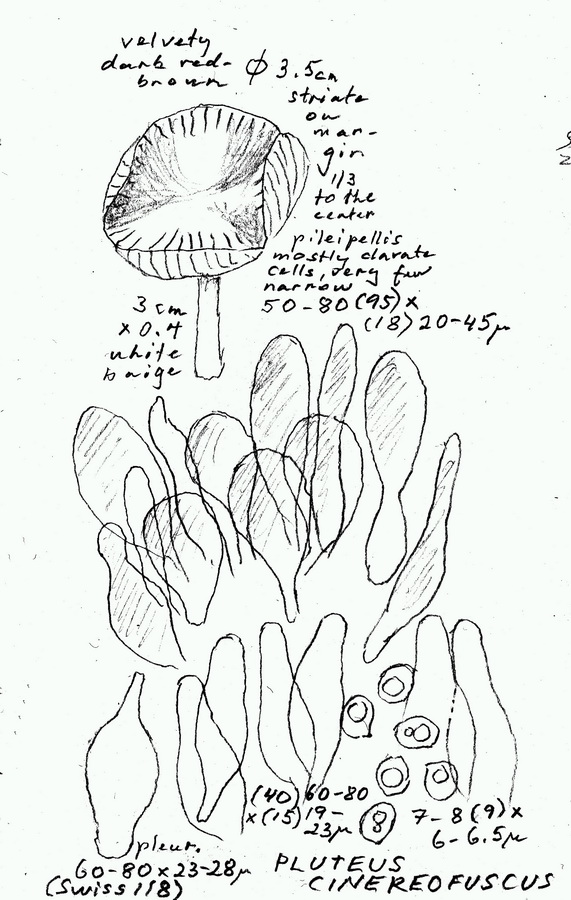 velvety
dark red-
brown
ϕ 3.5cm
striate
on
mar-
gin
1/3
to the
center
pileipellis
mostly clavate
cells, very few
narrow
50-80(95)x
(18)20-45µ
3 cm
x 0.4
white
baige
(40)60-80
x(15)19-
23µ
7-8(9)x
6-6.5µ
pleur.
60-80x23-28µ
(Swiss 118)
PLUTEUS
CINEREOFUSCUS